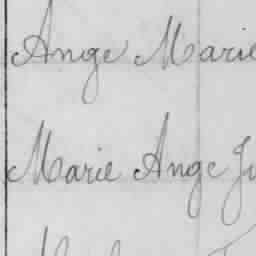 Ange Marie
Marie Ange